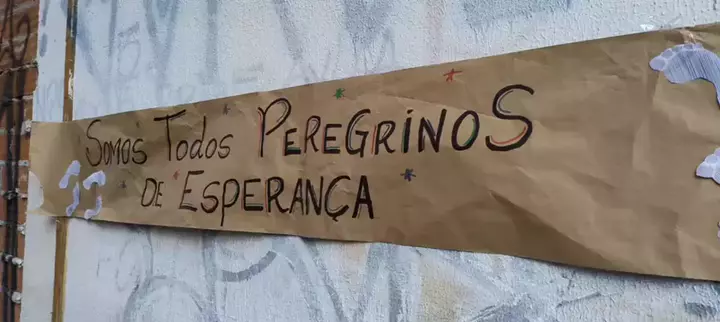 Somos Todos PEREGRINOS
DE ESPERANÇA